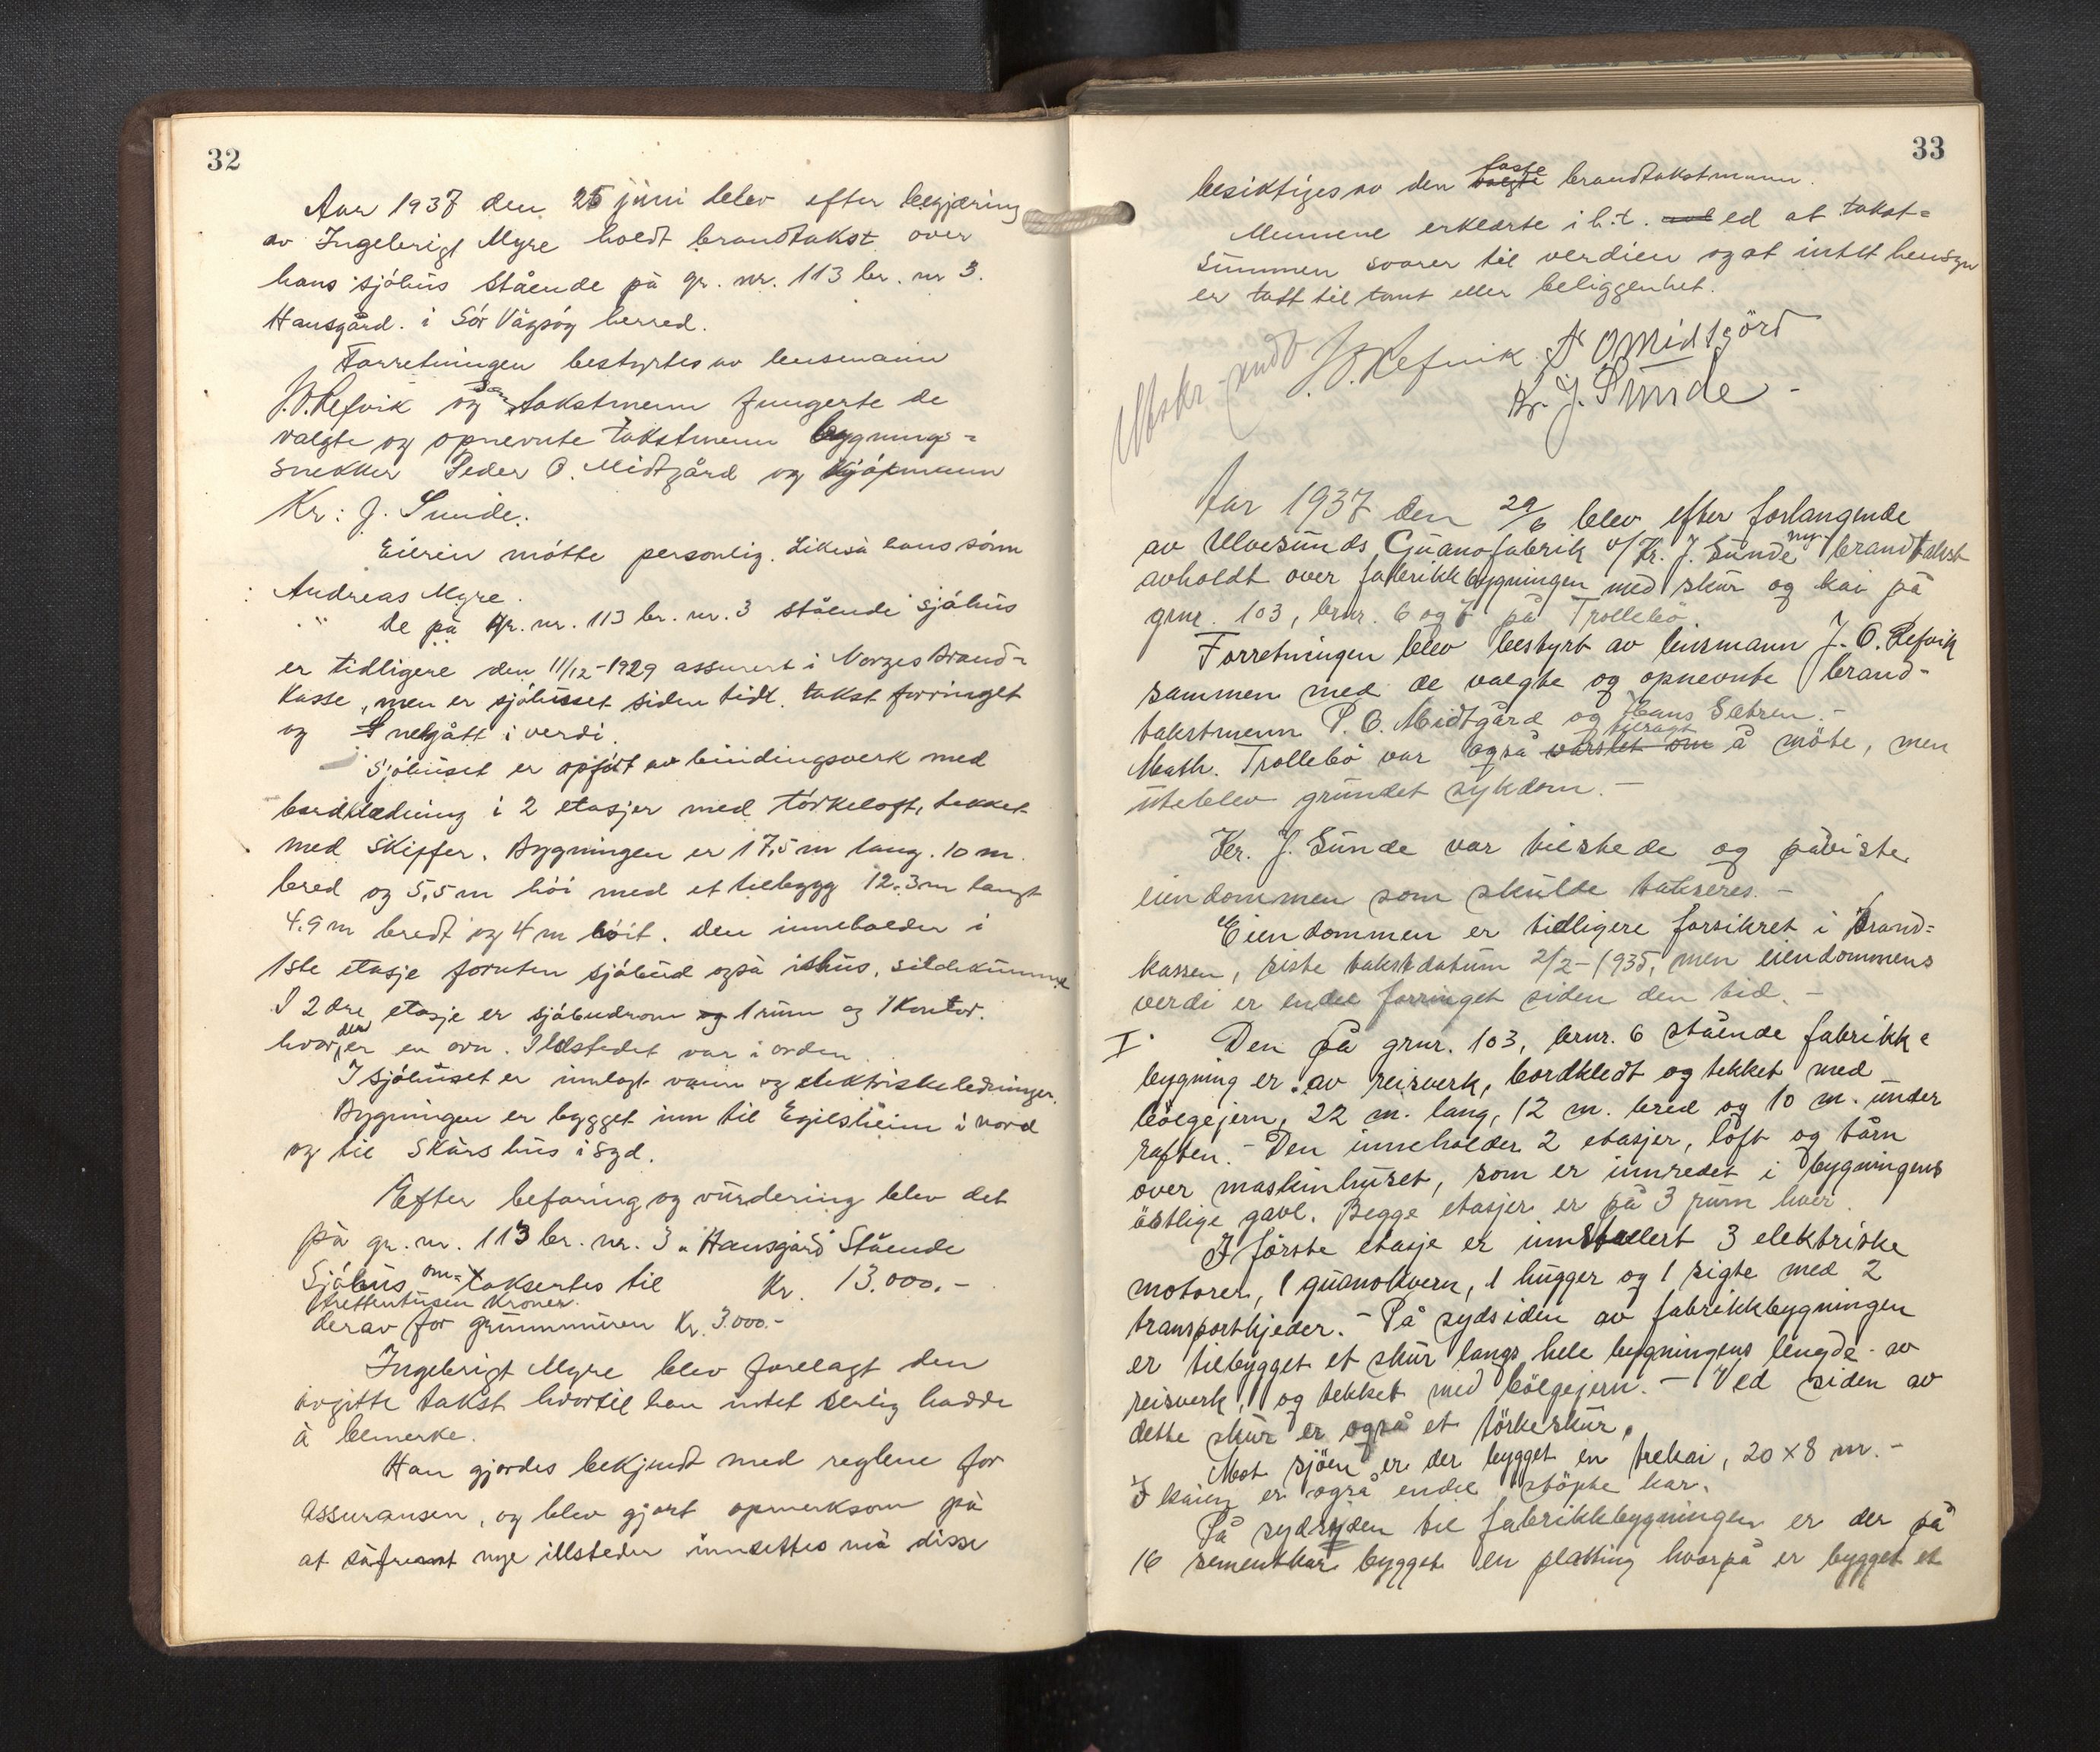 32
Aar 1937 den 25 juni blev efter begjæring
av Ingebrigt Myre holdt brandtakst over
hans sjöhus stående på gr. nr. 113 br. nr 3.
Hansgård. i Sör Vågsöy herred.
Forretningen bestyrtes av lensmann
J.O. Refvik og som takstmenn fungerte de
valgte og opnevnte takstmenn bygnings=
snekker Peder O. Midtgård og kjöpmann
Kr: J. Sunde.
Eieren mötte personlig. Likeså hans sönn
Andreas Myre.
De på gr. nr. 113 br. nr. 3 stående sjöhus
er tidligere den 11/12-1929 assurert i Norges Brand=
kasse, men er sjöhusset siden tidl. takst forringet
og nedgått i verdi.
Sjöhuset er opfört av bindingsverk med
bordklædning i 2 etasjer med törkeloft, tekket
med skiffer. Bygningen er 17,5 m lang. 10 m.
bred og 5,5 m höi med et tilbygg 12.3 m langt
4.9 m bredt og 4 m höit. Den inneholder i
1ste etasje foruten sjöbud også ishus, sildekummer
I 2dre etasje er sjöbudrom og 1 rum og 1 kontor.
hvor der er en ovn. Illstedet var i orden.
I sjöhuset er innlagt vann og elektriske ledninger.
Bygningen er bygget inn til Egilsheim i nord
og til Skårs hus i syd.
Efter befaring og vurdering blev det
på gr. nr. 113 br. nr. 3 "Hansgård" Stående
Sjöhus om=taksertes til Kr. 13.000.-
Trettentusen Kroner.
derav for grunnmuren Kr. 3.000.-
Ingebrigt Myre blev forelagt den
avgitte takst hvortil han intet særlig hadde
å bemerke.
Han gjordes bekjendt med reglene for
assuransen, og blev gjort opmerksom på
at såfremt nye illsteder innsettes må disse
33
besiktiges av den valgte faste brandtakstmann.
Mennene erklærte i h.t. ed at takst=
summen svarer til verdien og at intet hensyn
er tatt til tomt eller beliggenhet.
J.O. Refvik P O Midtgörd
Kr. J. Sunde -
Aar 1937 den 29/6 blev efter forlangende
av Ulvesunds Guanofabrik v/ Kr. J. Sunde ny brandtakst
avholdt over fabrikkbygningen med skur og kai på
grnr. 103, brnr. 6 og 7 på Trollebö.
Forretningen blev bestyrt av lensmann J. O. Refvik
sammen med de valgte og opnevnte brand-
takstmenn P. O. Midtgård og Hans Sætren.-
Math. Trollebö var også varslet om tilsagt å möte, men
uteblev grundet sykdom.-
Kr. J. Sunde var tilstede og påviste
eiendommen som skulde takseres.-
Eiendommen er tidligere forsikret i Brand=
kassen, siste takstdatum 2/2-1935, men eiendommens
verdi er endel forringet siden den tid.-
I. Den på grnr. 103, brnr. 6 stående fabrikk=
bygning er av reisverk, bordkledt og tekket med
bölgejern, 22 m. lang, 12 m. bred og 10 m. under
raften.- Den inneholder 2 etasjer, loft og tårn
over maskinhuset, som er innredet i bygningens
östlige gavl. Begge etasjer er på 3 rum hver.
I förste etasje er innstallert 3 elektriske
motorer, 1 guanokvern, 1 hugger og 1 sigte med 2
transportkjeder.- På sydsiden av fabrikkbygningen
er tilbygget et skur langs hele bygningens lengde av
reisverk, og tekket med bölgejern.- Ved siden av
dette skur er også et törkeskur.
Mot sjöen er der bygget en trekai, 20 x 8 m.-
I kaien er også endel stöpte kar.
På sydsyden til fabrikkbygningen er der på
16 sementkar bygget en platting hvorpå er bygget et